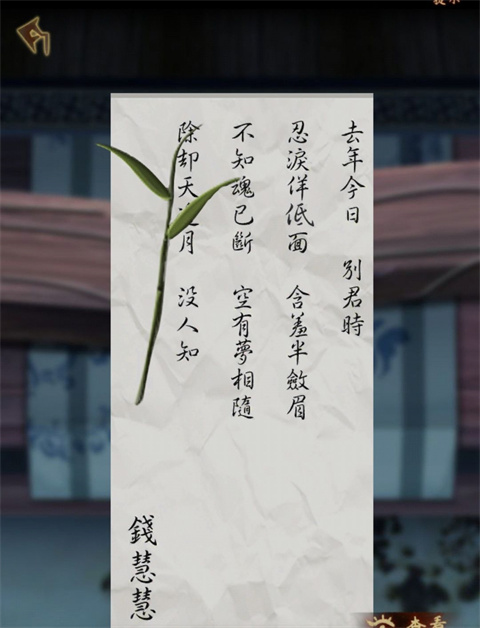 去年今日 別君時
忍淚佯低面 含羞半斂眉
不知魂已斷 空有夢相隨
除却天月 没人知
錢慧慧
查看